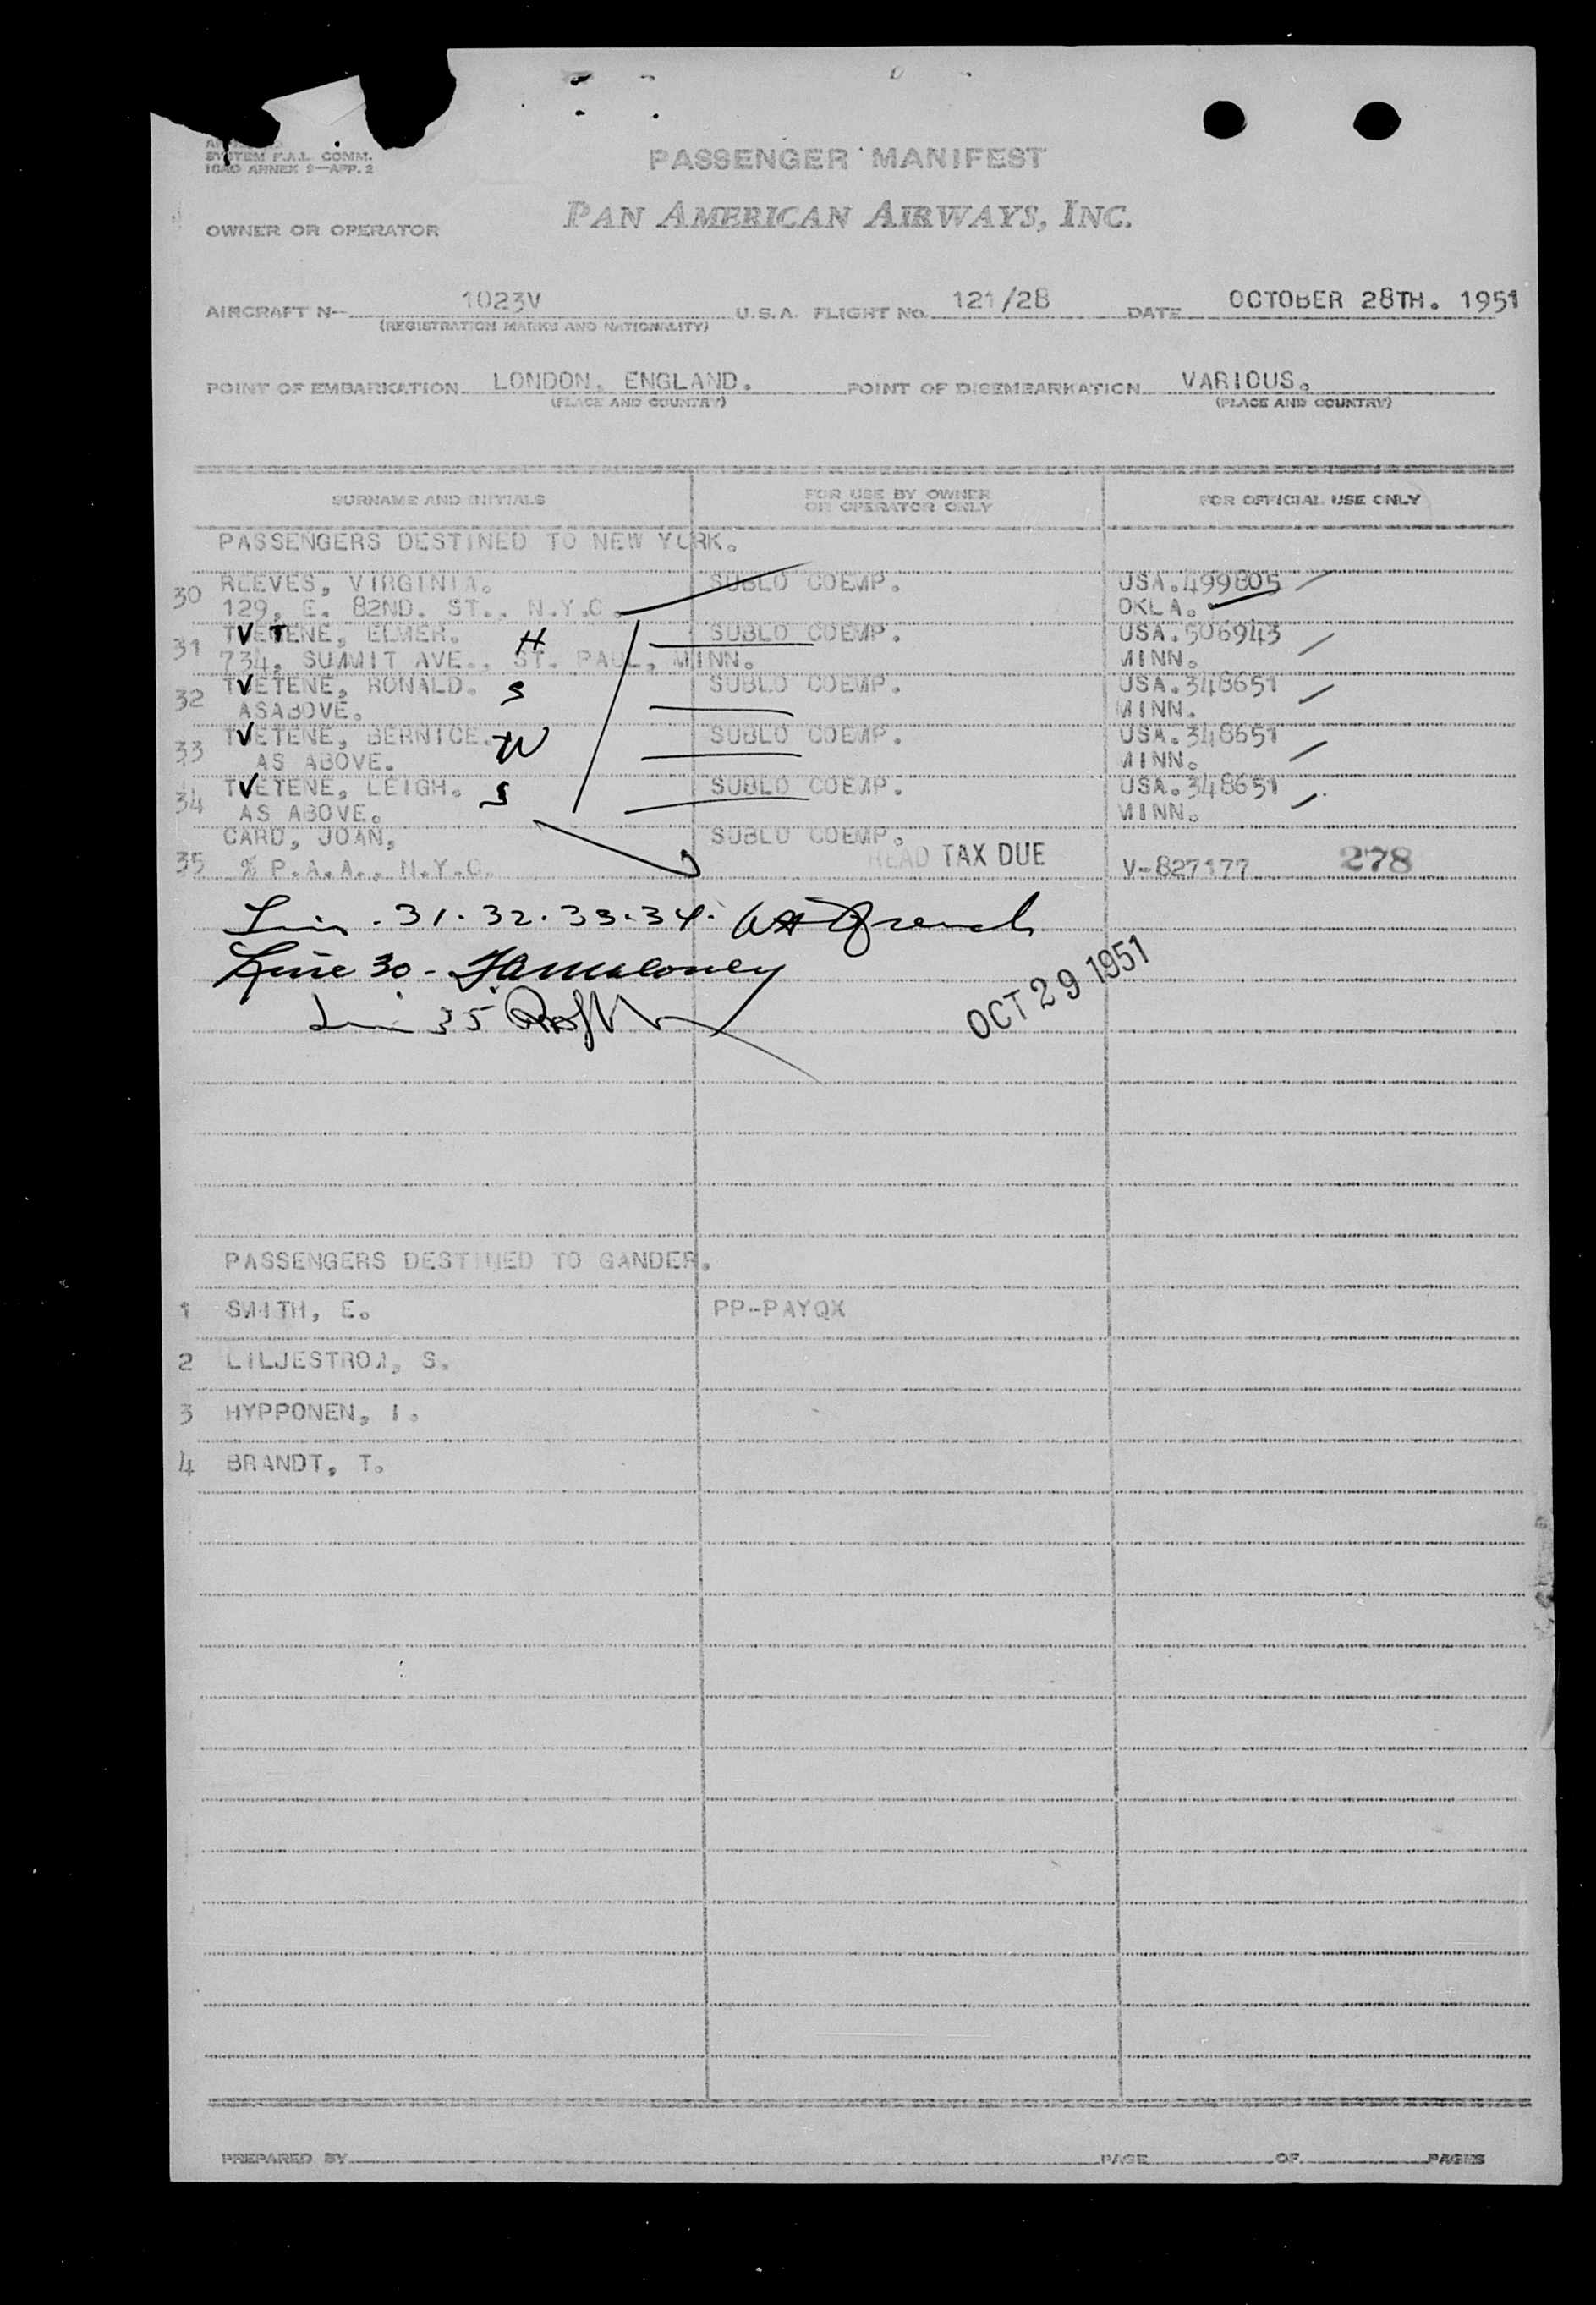 SYSTEM F.A.L. COMM.
ICAO ANNEX 9—APP. 2
PASSENGER MANIFEST
OWNER OR OPERATOR
PAN AMERICAN AIRWAYS, INC.
AIRCRAFT N-- 1023V U.S.A. FLIGHT NO. 121/28 DATE OCTOBER 28TH. 1951
(REGISTRATION MARKS AND NATIONALITY)
POINT OF EMBARKATION LONDON, ENGLAND. POINT OF DISEMBARKATION VARIOUS.
(PLACE AND COUNTRY) (PLACE AND COUNTRY)
SURNAME AND INITIALS FOR USE BY OWNER OR OPERATOR ONLY FOR OFFICIAL USE ONLY
PASSENGERS DESTINED TO NEW YORK.
30 REEVES, VIRGINIA. SUBLO COEMP. USA.499805
129, E. 82ND. ST., N.Y.C. OKLA.
31 TVETENE, ELMER. H SUBLO COEMP. USA.506943
734, SUMMIT AVE., ST. PAUL, MINN. MINN.
32 TVETENE, RONALD. S SUBLO COEMP. USA.348651
ASABOVE. MINN.
33 TVETENE, BERNICE. W SUBLO COEMP. USA.348651
AS ABOVE. MINN.
34 TVETENE, LEIGH. S SUBLO COEMP. USA.348651
AS ABOVE. MINN.
CARD, JOAN, SUBLO COEMP.
35 % P.A.A., N.Y.C. HEAD TAX DUE V-827177 278
31. 32. 33. 34.
Line 30 -
35
OCT 29 1951
PASSENGERS DESTINED TO GANDER.
1 SMITH, E. PP-PAYQX
2 LILJESTROM, S.
3 HYPPONEN, I.
4 BRANDT, T.
PREPARED BY PAGE OF PAGES